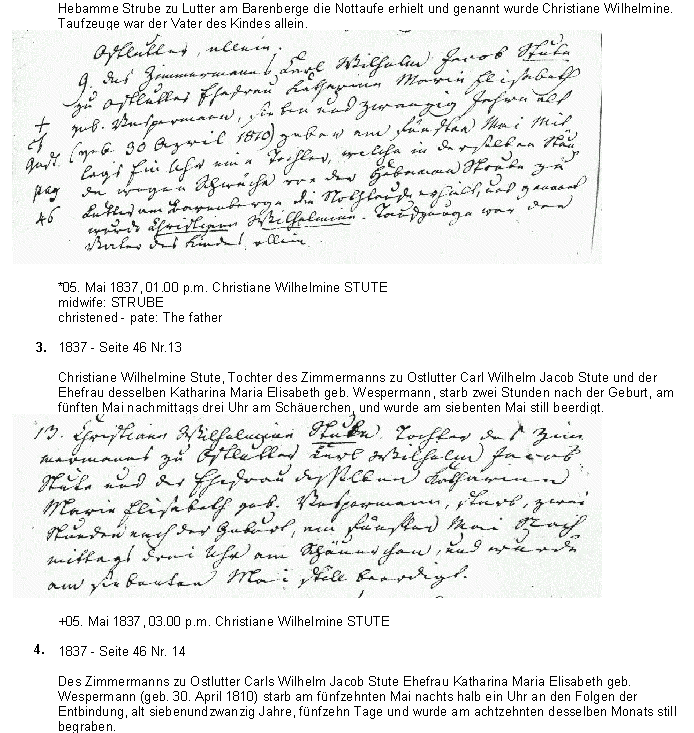 Hebamme Strube zu Lutter am Barenberge die Nottaufe erhielt und genannt wurde Christiane Wilhelmine.
Taufzeuge war der Vater des Kindes allein.
Ostlutter, allein.
9. des Zimmermanns Carl Wilhelm Jacob Stute
zu Ostlutter Ehefrau Katharina Maria Elisabeth
geb. Wespermann, sieben und zwanzig Jahre alt
(geb. 30 April 1810) gebar am fünften Mai mit
tags Ein Uhr eine Tochter, welche in derselben
da wegen Schwäche von der Hebamme Strube zu
pag
46
Lutter am Barenberge die Nothtaufe erhielt, und genannt
wurde Christiane Wilhelmine. Taufzeuge war der
Vater des Kindes allein.
*05. Mai 1837, 01.00 p.m. Christiane Wilhelmine STUTE
midwife: STRUBE
christened - pate: The father
3. 1837 - Seite 46 Nr.13
Christiane Wilhelmine Stute, Tochter des Zimmermanns zu Ostlutter Carl Wilhelm Jacob Stute und der
Ehefrau desselben Katharina Maria Elisabeth geb. Wespermann, starb zwei Stunden nach der Geburt, am
fünften Mai nachmittags drei Uhr am Schäuerchen, und wurde am siebenten Mai still beerdigt.
13. Christiane Wilhelmine Stute, Tochter des Zim
mermanns zu Ostlutter Carl Wilhelm Jacob
Stute und der Ehefrau desselben Katharina
Maria Elisabeth geb. Wespermann, starb, zwei
Stunden nach der Geburt, am fünften Mai Nach
mittags drei Uhr am Schäuerchen, und wurde
am siebenten Mai still beerdigt.
+05. Mai 1837, 03.00 p.m. Christiane Wilhelmine STUTE
4. 1837 - Seite 46 Nr. 14
Des Zimmermanns zu Ostlutter Carls Wilhelm Jacob Stute Ehefrau Katharina Maria Elisabeth geb.
Wespermann (geb. 30. April 1810) starb am fünfzehnten Mai nachts halb ein Uhr an den Folgen der
Entbindung, alt siebenundzwanzig Jahre, fünfzehn Tage und wurde am achtzehnten desselben Monats still
begraben.